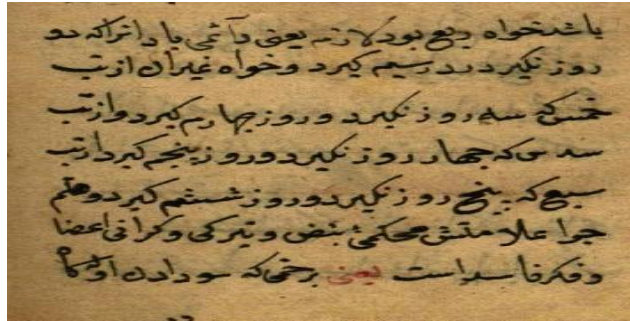 باشد خواه ربع بود لازمه یعنی دائمی یا دائره که دو
روز نگیرد در سیم گیرد و خواه غیر ان از تب
خمس که سه روز نگیرد و روز چهارم گیرد و از تب
سدس که چهار روز نگیرد و روز پنجم گیرد از تب
سبع که پنج روز نگیرد و روز ششم گیرد و هلم
جرا علامتش محکمی نبض و تیرکی و کرانی اعضا
و فکر فاسد است یعنی برختی که سودا در او